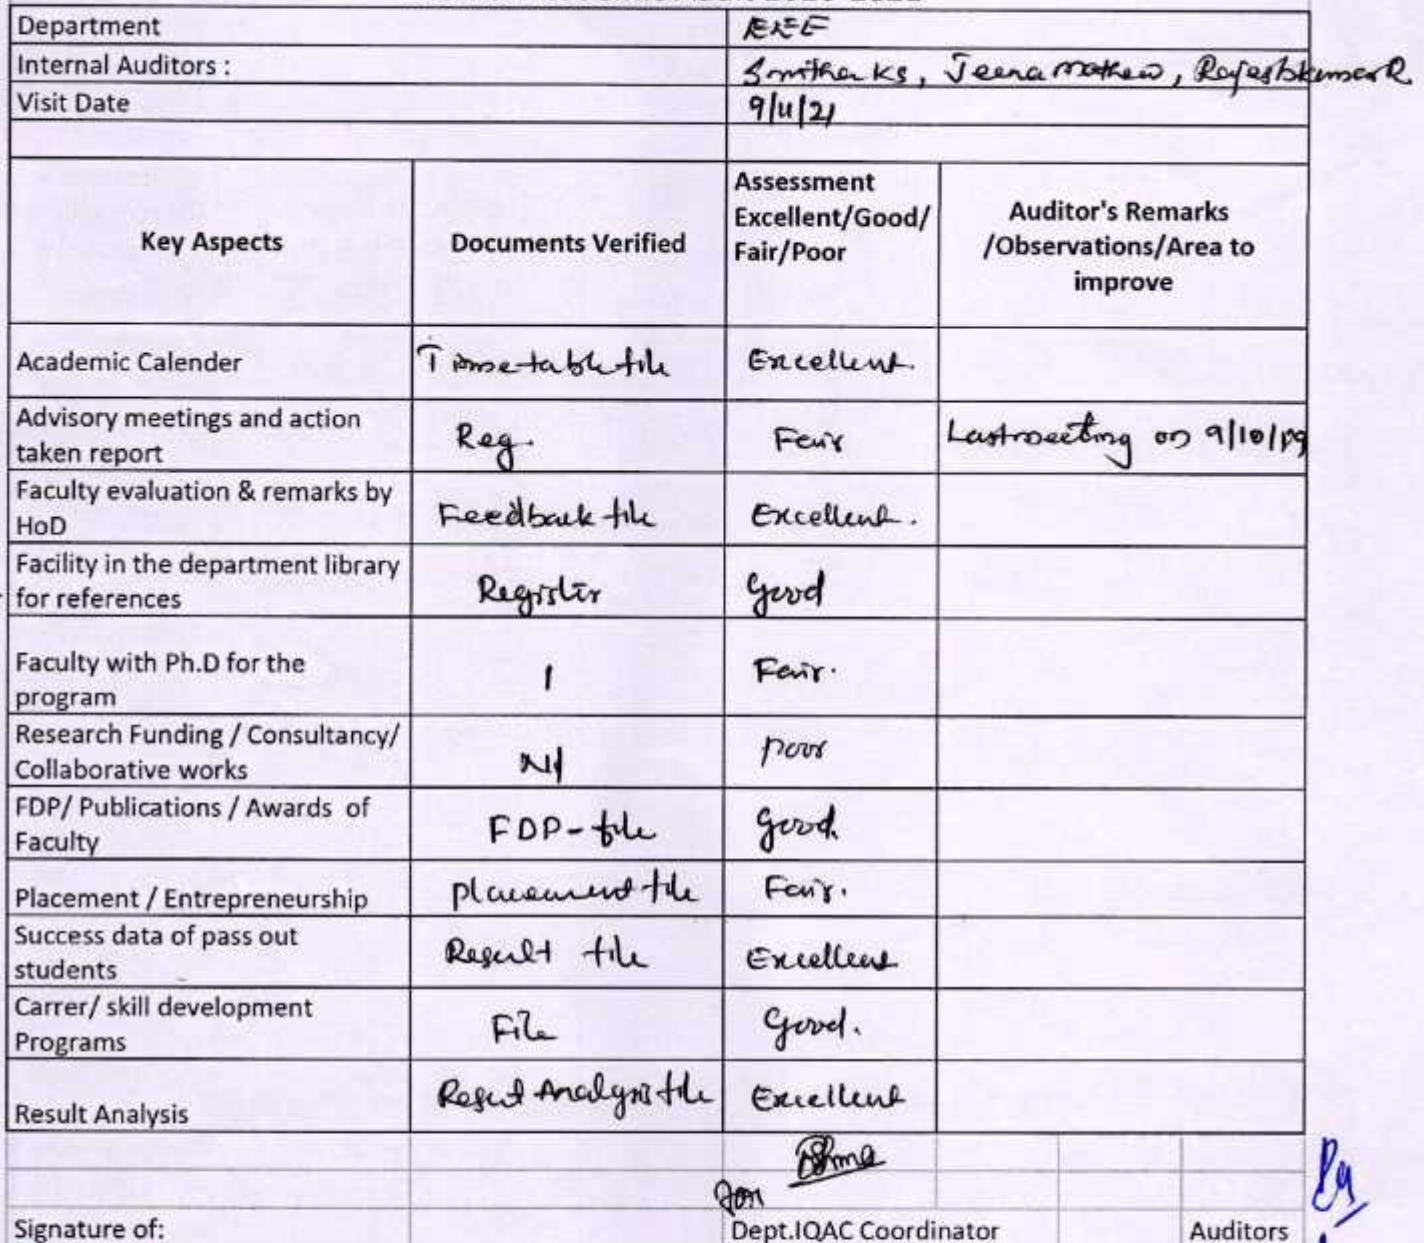 Department EEE
Internal Auditors : Smitha KS, Jeena Mathew, Rajeshkumar R
Visit Date 9/11/21
Key Aspects Documents Verified Assessment Excellent/Good/ Fair/Poor Auditor's Remarks /Observations/Area to improve
Academic Calender Timetable file Excellent.
Advisory meetings and action taken report Reg. Fair Last meeting on 9/10/19
Faculty evaluation & remarks by HoD Feedback file Excellent.
Facility in the department library for references Register Good
Faculty with Ph.D for the program 1 Fair.
Research Funding / Consultancy/ Collaborative works Nil poor
FDP/ Publications / Awards of Faculty FDP-file Good.
Placement / Entrepreneurship placement file Fair.
Success data of pass out students Result file Excellent
Carrer/ skill development Programs File Good.
Result Analysis Result Analysis file Excellent
Signature of: Dept.IQAC Coordinator Auditors